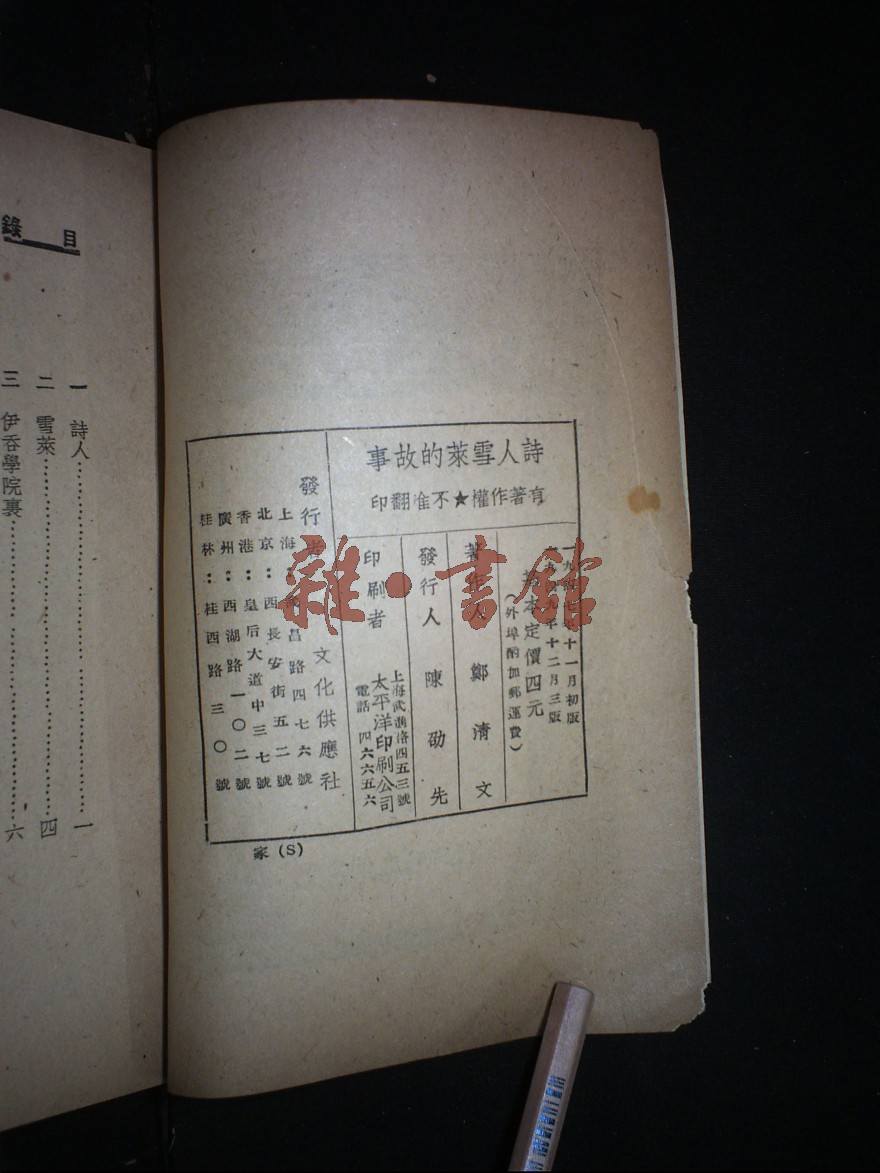 詩人雪萊的故事
有著作權★不准翻印
一九四七年十一月初版
一九四九年十二月三版
基本定價四元
(外埠酌加郵運費)
著作人 鄭清文
發行人 陳劭先
印刷者 太平洋印刷公司
上海武進路四五三號
電話 四六六五六
發行者 文化供應社
上海:武昌路四七六號
北京:西長安街五二號
香港:皇后大道中三七號
廣州:西湖路一〇二號
桂林:桂西路三〇號
家(S)
目錄
一 詩人……一
二 雪萊……四
三 伊吞學院裏……六
雜·書館